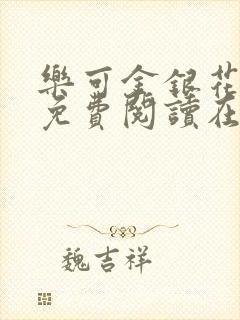 樂可金銀花
免費閱讀在
魏吉祥